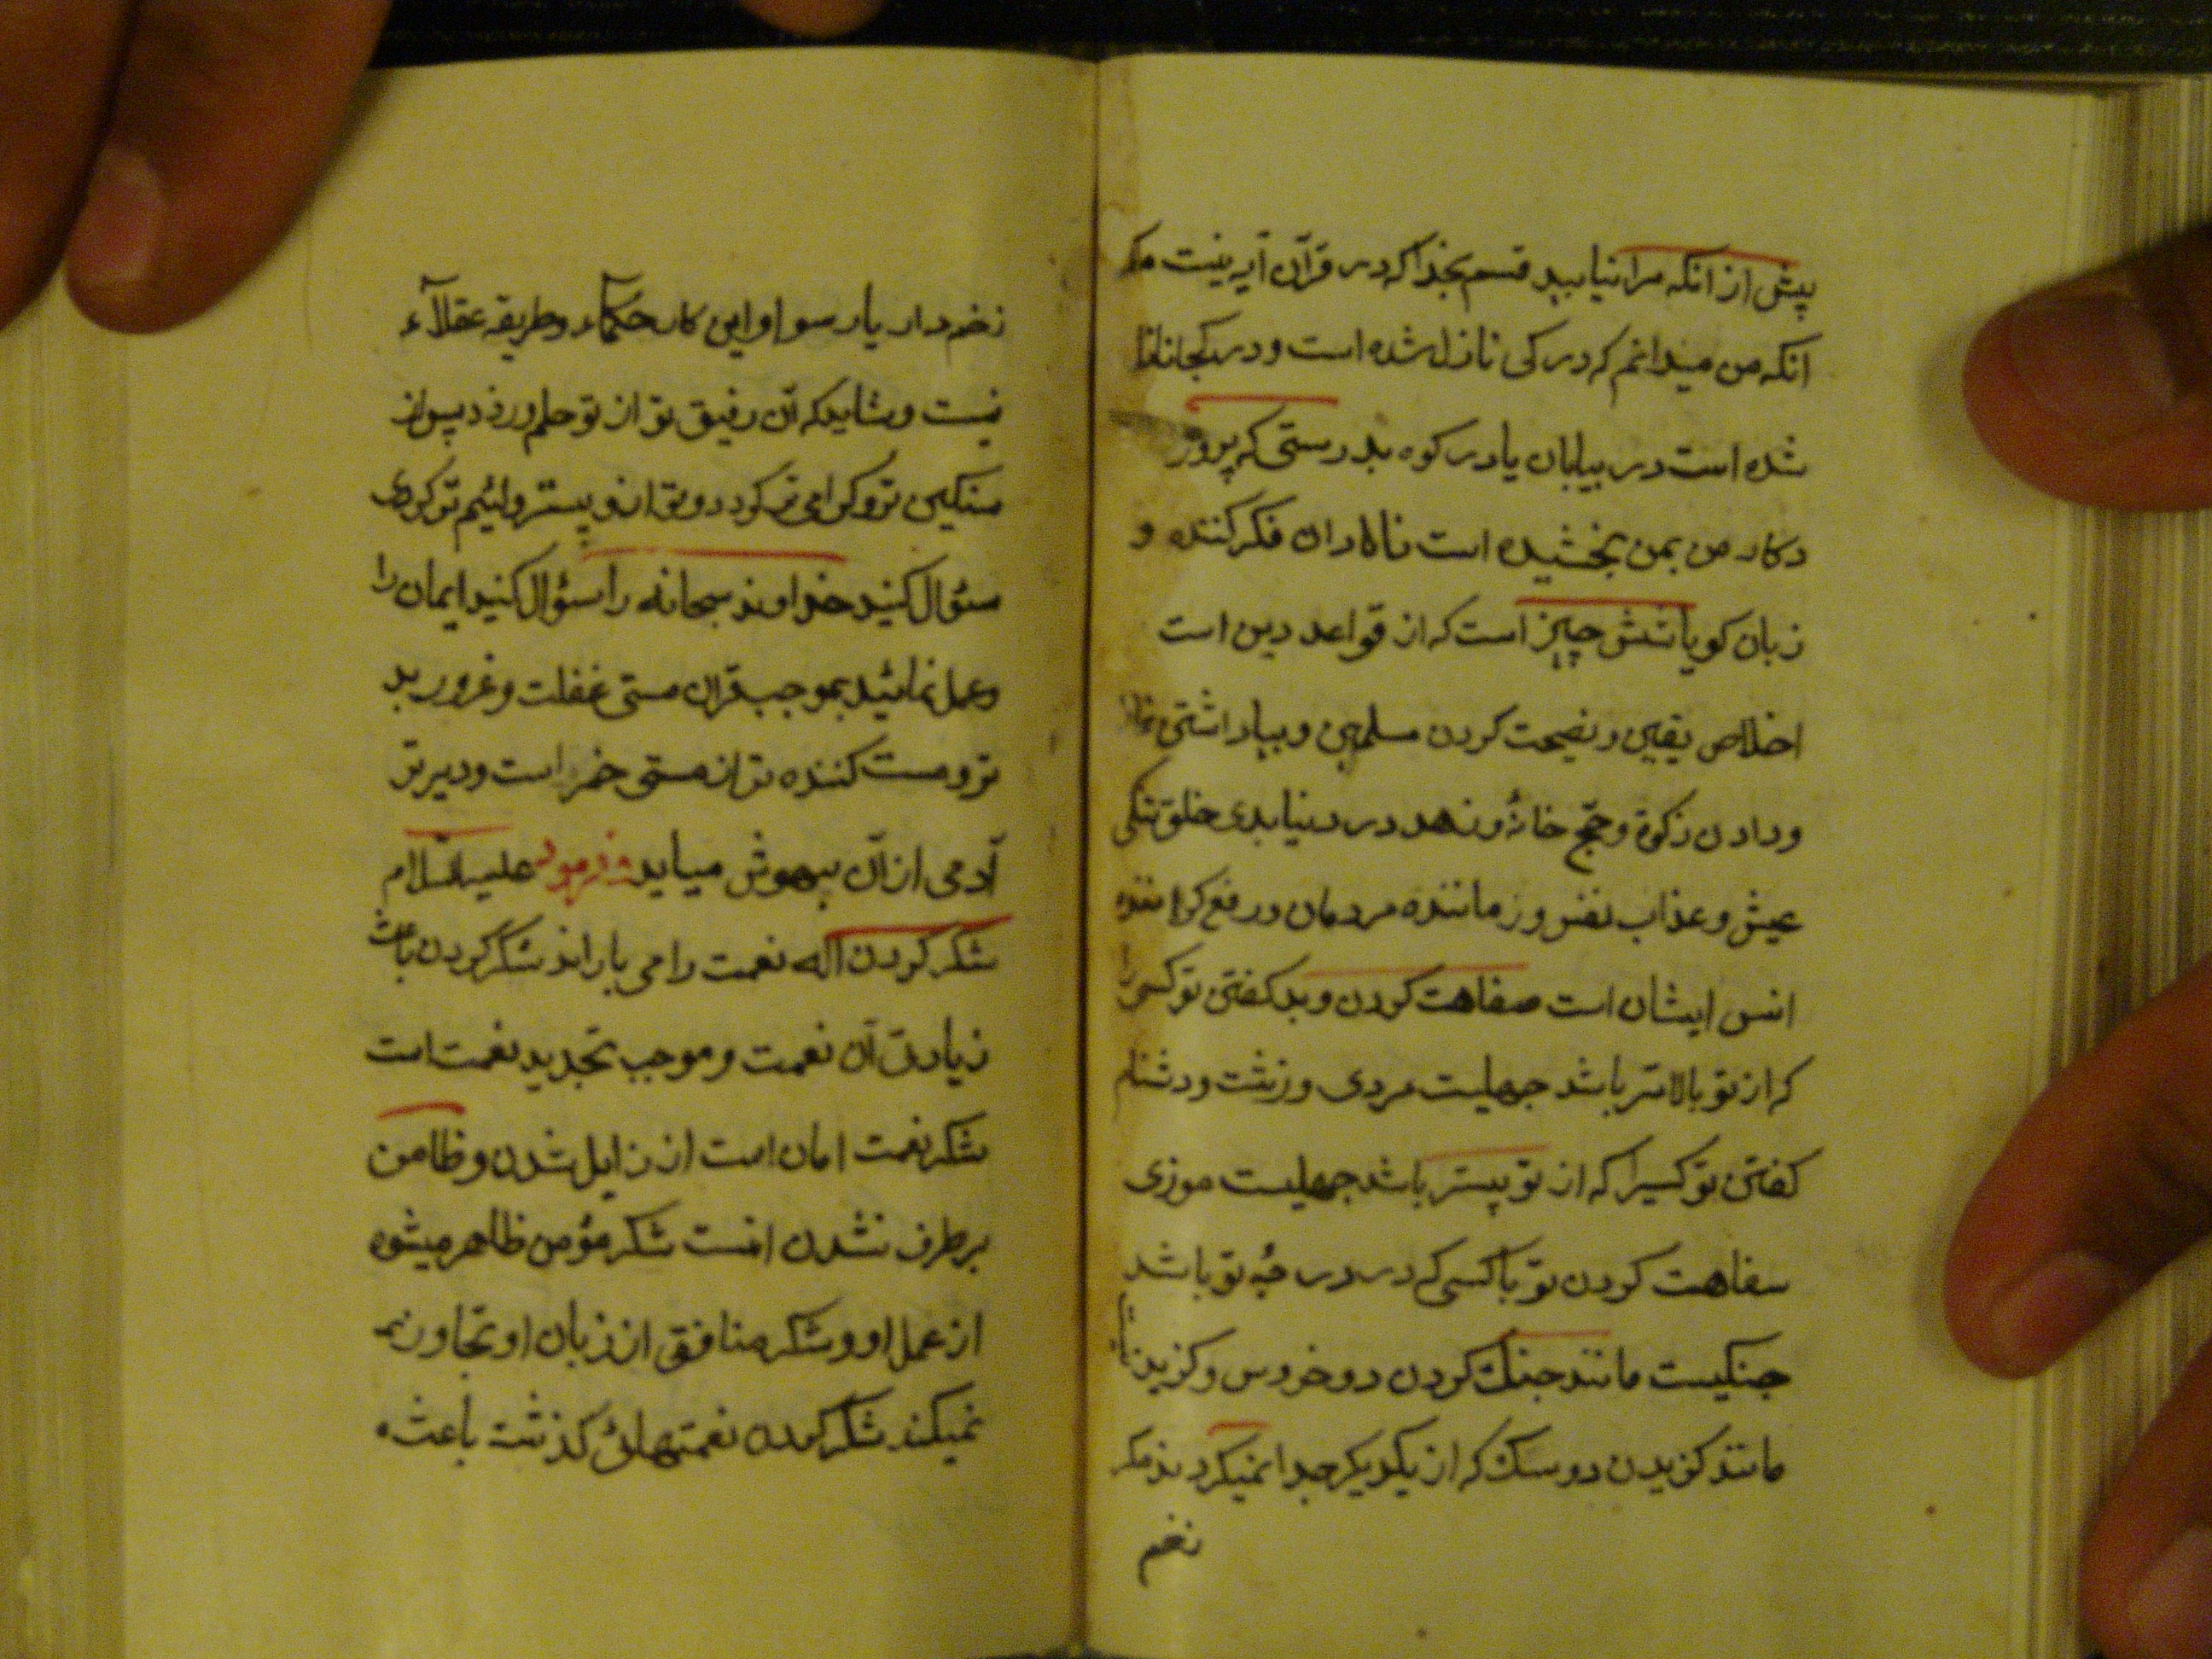 پیش از انکه مرا نیابید قسم بخدا که در قرآن آیه نیست مکر
انکه من میدانم که در کی نازل شده است و در کجا نازل
شده است در بیابان یا در کوه بدرستی که پرور
دکار من بمن بخشیده است فکر کننده و
زبان کویا شش چیز است که از قواعد دین است
اخلاص یقین و نصیحت کردن مسلمین و بپا داشتن نماز
و دادن زکوة و حج خانه و زهد در دنیا بدی خلق تنکی
عیش و عذاب نفس و رماننده مردمان و رفع کننده
انس ایشان است سفاهت کردن و بد کفتن تو کسی را
که از تو بالاتر باشد جهلیست مردی و زشت و دشنام
کفتن تو کسیرا که از تو پستر باشد جهلیست موزی
سفاهت کردن تو با کسی که در درجه تو باشد
جنکیست مانند جنک کردن دو خروس و کزیدنی
مانند کزیدن دو سک که از یکدیکر جدا نمیکردند مکر
زخم
زخم دار یا رسوا و این کار حکمآء و طریقه عقلآء
نیست و شاید که آن رفیق تو از تو حلم ورزد پس از
سنکین تر و کرامی تر کردد و تو از او پستر و لئیم تر کردی
سؤال کنید خداوند سبحانه را سؤال کنید ایمان را
و عمل نمائید بموجب قران مستی غفلت و غرور بد
تر و مست کننده تر از مستی خمر است و دیرتر
آدمی از آن بیهوش میاید و فرمود علیه السلام
شکر کردن اله نعمت را می باراند شکر کردن باعث
زیادتی آن نعمت و موجب تجدید نعمت است
شکر نعمت امان است از زایل شدن و ظامن
برطرف نشدن انست شکر مؤمن ظاهر میشود
از عمل او و شکر منافق از زبان او تجاوز نمی
نمیکند شکر کردن نعمتهای کذشته باعث